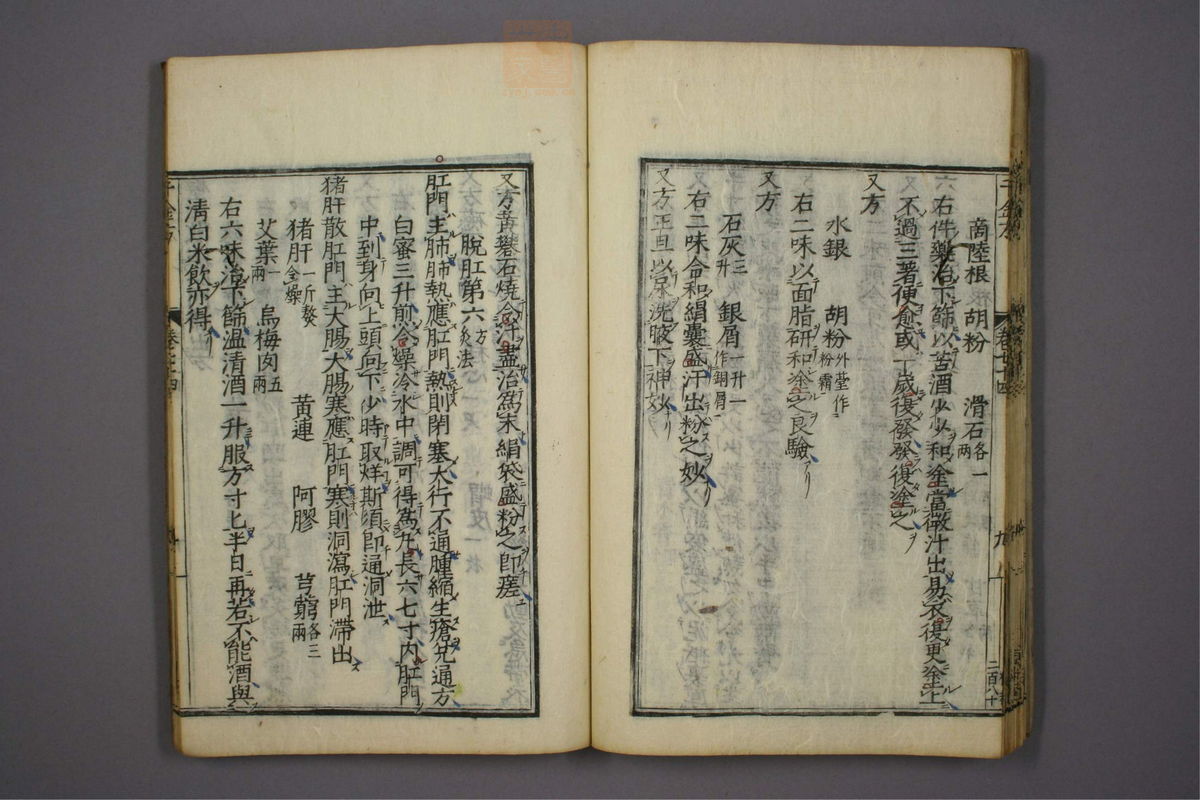 商陸根 胡粉 滑石各一兩
右件藥冶下篩以苦酒少少和塗當微汁出易衣復更塗之
不過三著便愈或一歲復發發復塗之
又方
水銀 胡粉外臺作粉霜
右二味以面脂研和塗之良驗
又方
石灰三升 銀屑一升一作銅屑
右二味合和絹囊盛汗出粉之妙
又方正旦以尿洗腋下神妙
二百八十
又方黃礬石燒令汁盡冶爲末絹袋盛粉之卽瘥
脫肛第六方 灸法
肛門主肺肺熱應肛門熱則閉塞大行不通腫縮生瘡兌通方
白蜜三升煎令燥冷水中調可得爲丸長六七寸內肛門
中到身向上頭向下少時取烊斯須卽通洞泄
猪肝散肛門主大腸大腸寒應肛門寒則洞瀉肛門滯出
猪肝一斤熬令燥 黃連 阿膠 芎藭各三兩
艾葉一兩 烏梅肉五兩
右六味治下篩溫清酒一升服方寸匕半日再若不能酒與
清白米飲亦得
千金方
卷二十四